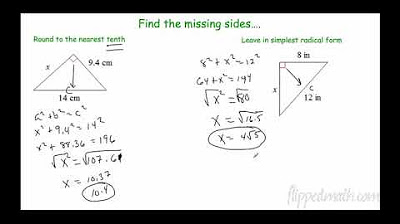 Find the missing sides....
Round to the nearest tenth
x
9.4 cm
C
14 cm
a² + b² = c²
x² + 9.4² = 14²
x² + 88.36 = 196
√x² = √107.64
x = 10.37
10.4
Leave in simplest radical form
8 in
x
c
12 in
8² + x² = 12²
64 + x² = 144
√x² = √80
x = √16.5
x = 4√5
flippedmath.com